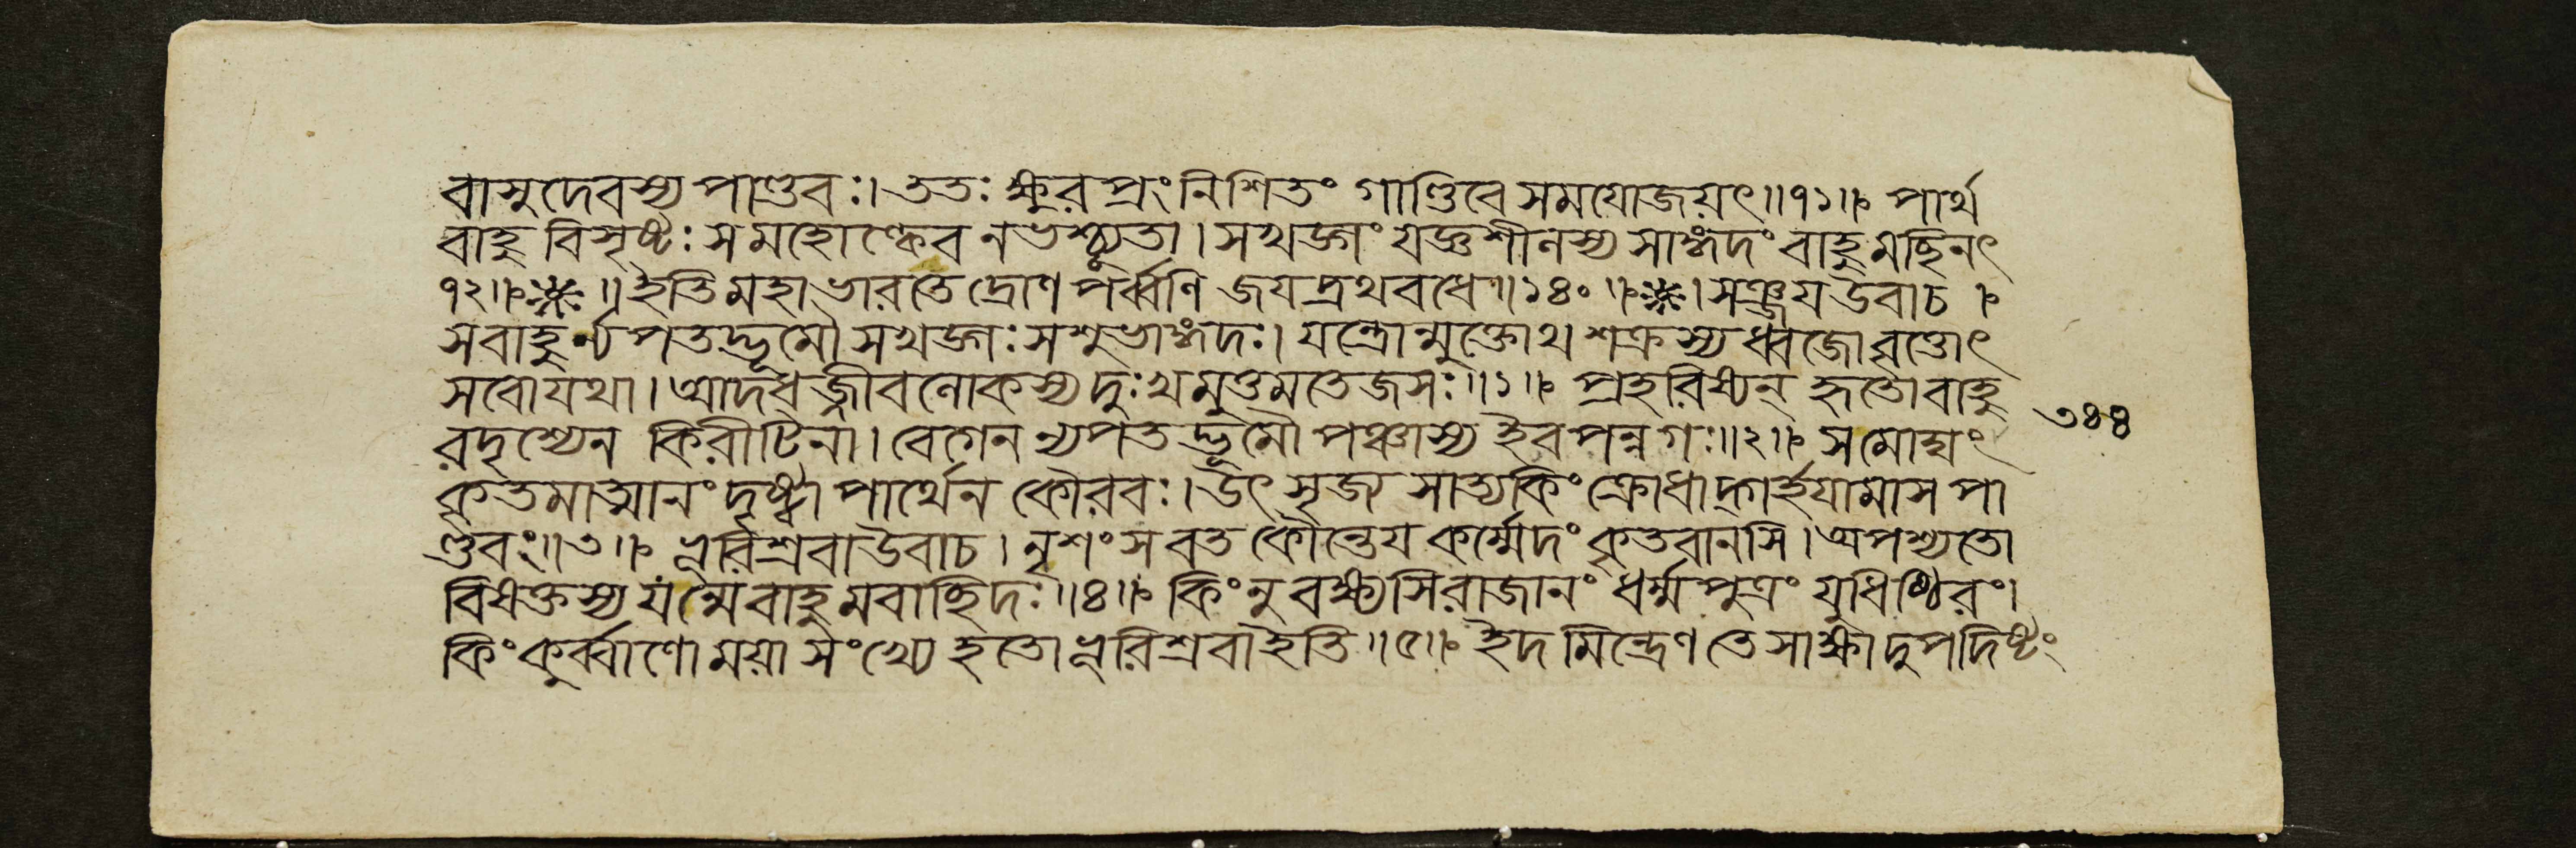 বাসুদেবস্য পাণ্ডবঃ। ততঃ ক্ষুরপ্রং নিশিতং গাণ্ডিবে সমযোজয়ৎ॥৭১॥ পার্থ
বাহু বিসৃষ্টঃ স মহোল্কেব নভশ্চ্যুতা। সখড়্গং যজ্ঞশীলস্য সাঙ্গদং বাহুমচ্ছিনৎ
৭২॥ ॥ ইতি মহাভারতে দ্রোণপর্ব্বণি জয়দ্রথবধে॥১৪০॥ । সঞ্জয় উবাচ
স বাহুর্ন্যপতদ্ভূমৌ সখড়্গঃ সশুভাঙ্গদঃ। যন্ত্রোন্মুক্তোথ শক্রস্য ধ্বজো
সবো যথা। আদধজ্জীবলোকস্য দুঃখমুত্তমতেজসঃ॥১॥ প্রহরিষ্যন্ হৃতো বাহু
রদৃশ্যেন কিরীটিনা। বেগেন ন্যপতদ্ভূমৌ পঞ্চাস্য ইব পন্নগঃ॥২॥ স মোঘং
কৃতমাত্মানং দৃষ্ট্বা পার্থেন কৌরবঃ। উৎসৃজ্য সাত্যকিং ক্রোধাদ্গর্হয়ামাস পা
ণ্ডবং॥৩॥ ভূরিশ্রবা উবাচ। নৃশংস বত কৌন্তেয় কর্ম্মেদং কৃতবানসি। অপশ্যতো
বিষক্তস্য যন্মে বাহুমবাচ্ছিদঃ॥৪॥ কিং নু বক্ষ্যসি রাজানং ধর্ম্মপুত্রং যুধিষ্ঠিরং।
কিং কুর্ব্বাণো ময়া সংখ্যে হতো ভূরিশ্রবা ইতি॥৫॥ ইদমিন্দ্রেণ তে সাক্ষাদুপদিষ্টং
৩৪৪